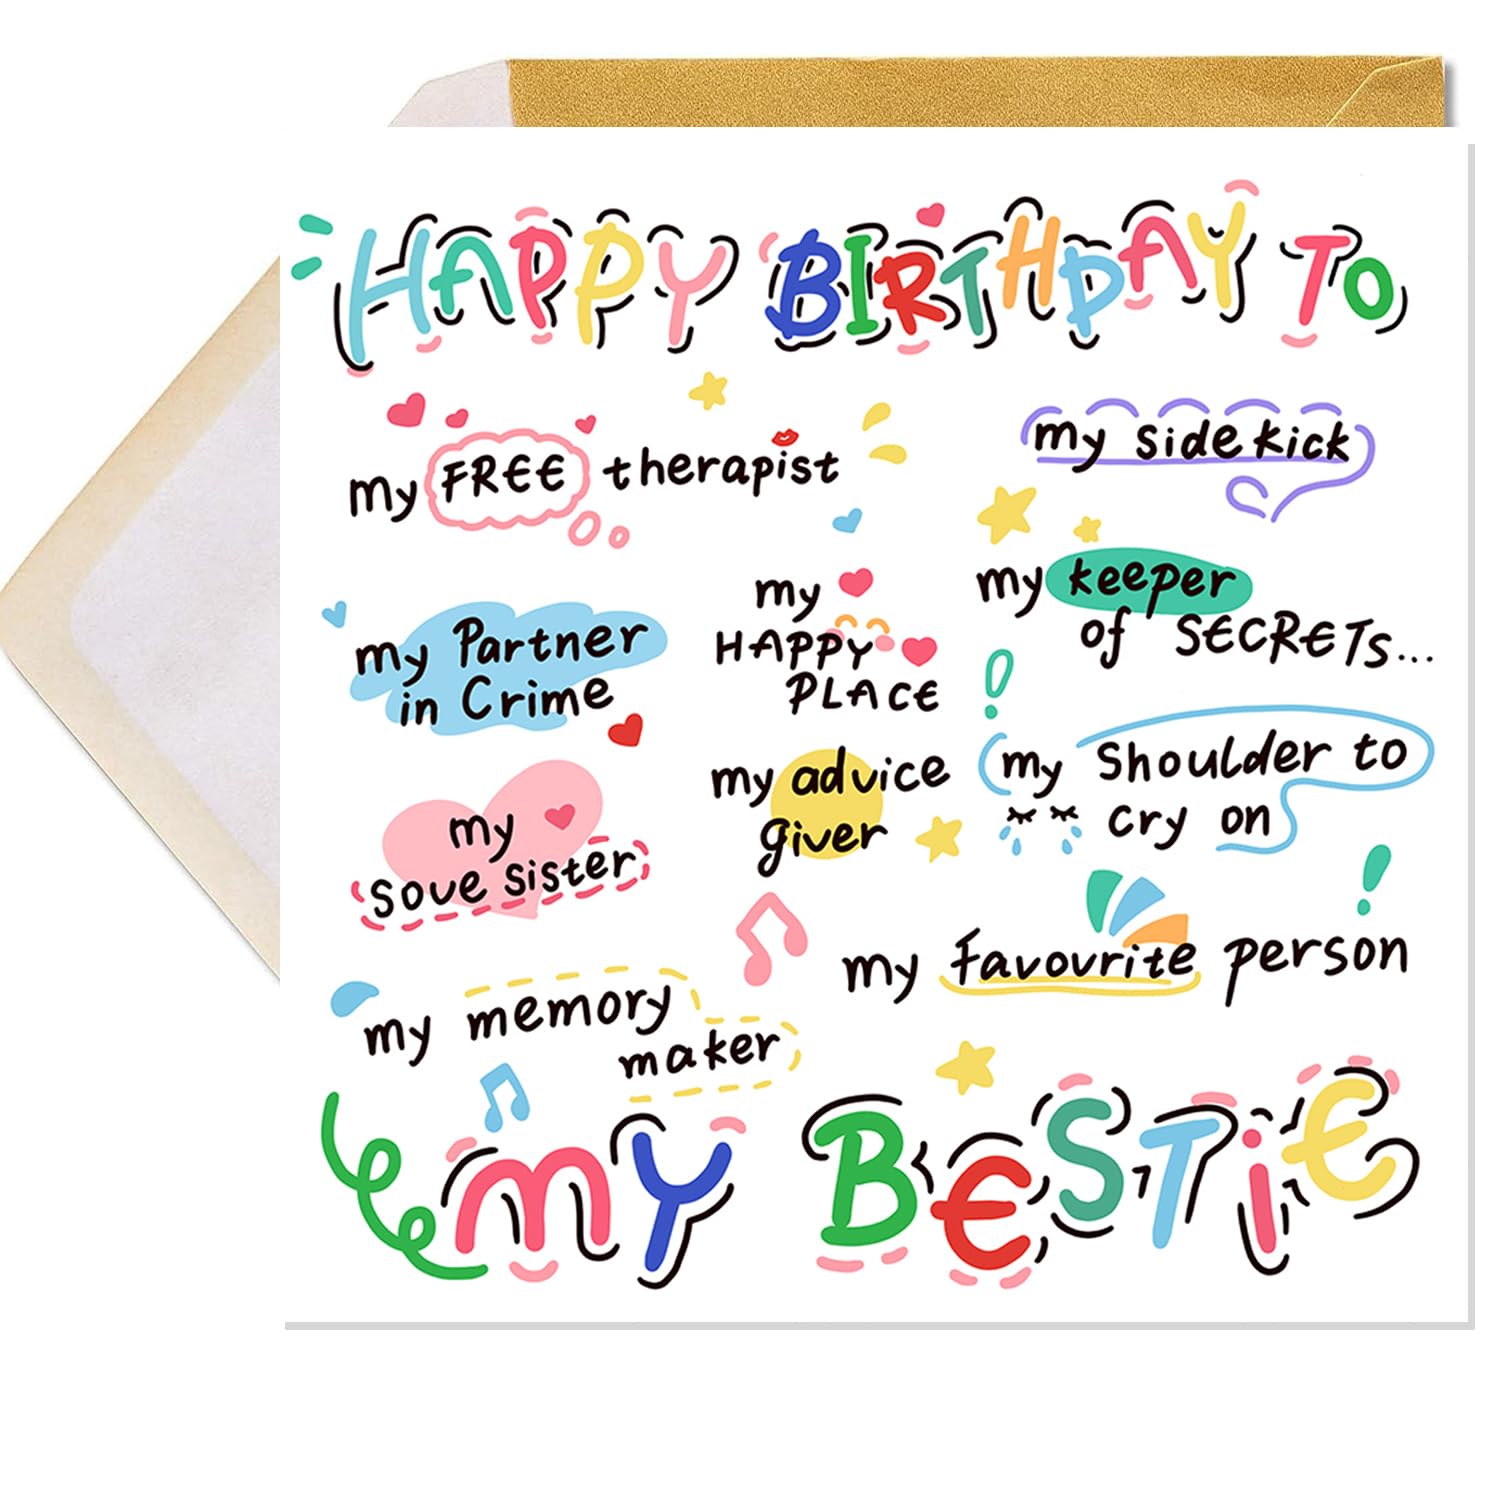 HAPPY BIRTHDAY TO
my FREE therapist
my sidekick
my Partner
in Crime
my
HAPPY
PLACE
my keeper
of SECRETS...
my
sove sister
my advice
giver
my Shoulder to
cry on
my favourite person
my memory
maker
my BESTiE